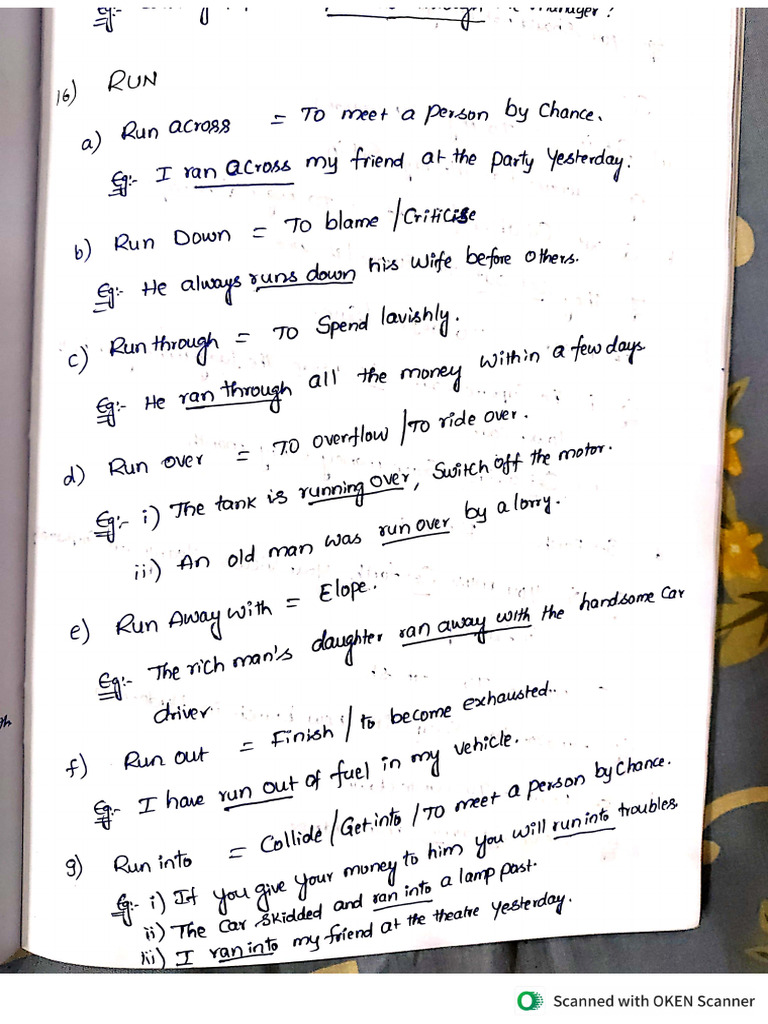 Eg:-
16) RUN
a) Run across = To meet a person by chance.
Eg:- I ran across my friend at the party yesterday.
b) Run Down = To blame / Criticise
Eg:- He always runs down his wife before others.
c) Run through = To Spend lavishly.
Eg:- He ran through all the money within a few days
d) Run over = To overflow / To ride over.
Eg:- i) The tank is running over, Switch off the motor.
ii) An old man was run over by a lorry.
e) Run Away with = Elope.
Eg:- The rich man's daughter ran away with the handsome car
driver.
f) Run out = Finish / to become exhausted..
Eg:- I have run out of fuel in my vehicle.
g) Run into = Collide / Get into / To meet a person by chance.
Eg:- i) If you give your money to him you will run into troubles
ii) The car skidded and ran into a lamp past.
iii) I ran into my friend at the theatre yesterday.
Scanned with OKEN Scanner